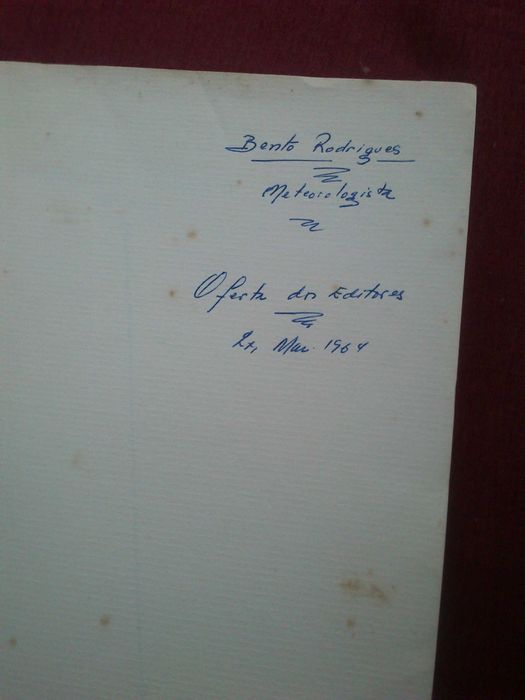 Bento Rodrigues
Meteorologista
Oferta dos Editores
Mar. 1964